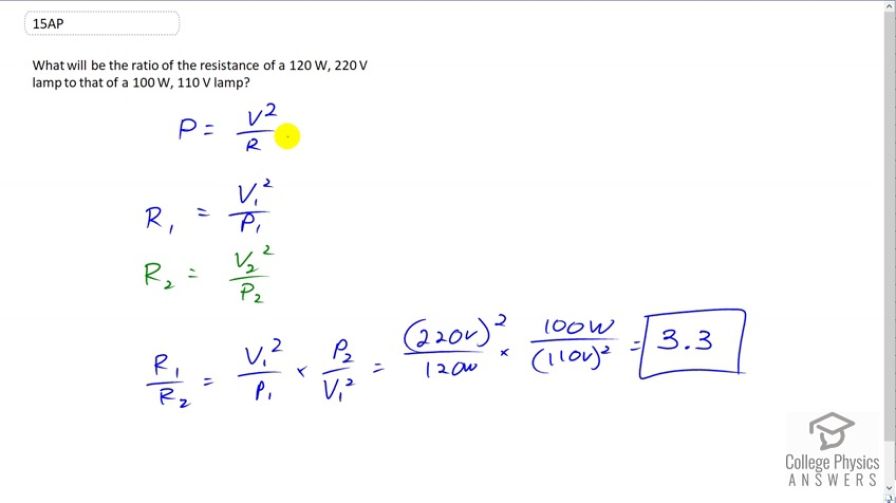 15AP
What will be the ratio of the resistance of a 120 W, 220 V
lamp to that of a 100 W, 110 V lamp?
P = V²/R
R₁ = V₁²/P₁
R₂ = V₂²/P₂
R₁/R₂ = V₁²/P₁ × P₂/V₁² = (220V)²/120W × 100W/(110V)² = 3.3
College Physics
ANSWERS